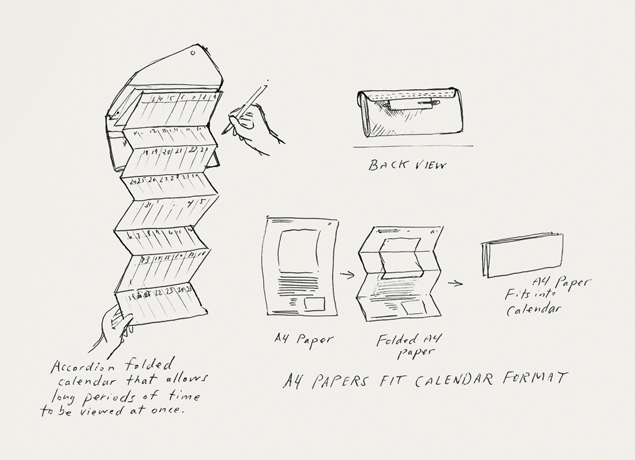 BACK VIEW
A4 Paper
Folded A4
paper
A4 Paper
Fits into
Calendar
A4 PAPERS FIT CALENDAR FORMAT
Accordion folded
calendar that allows
long periods of time
to be viewed at once.